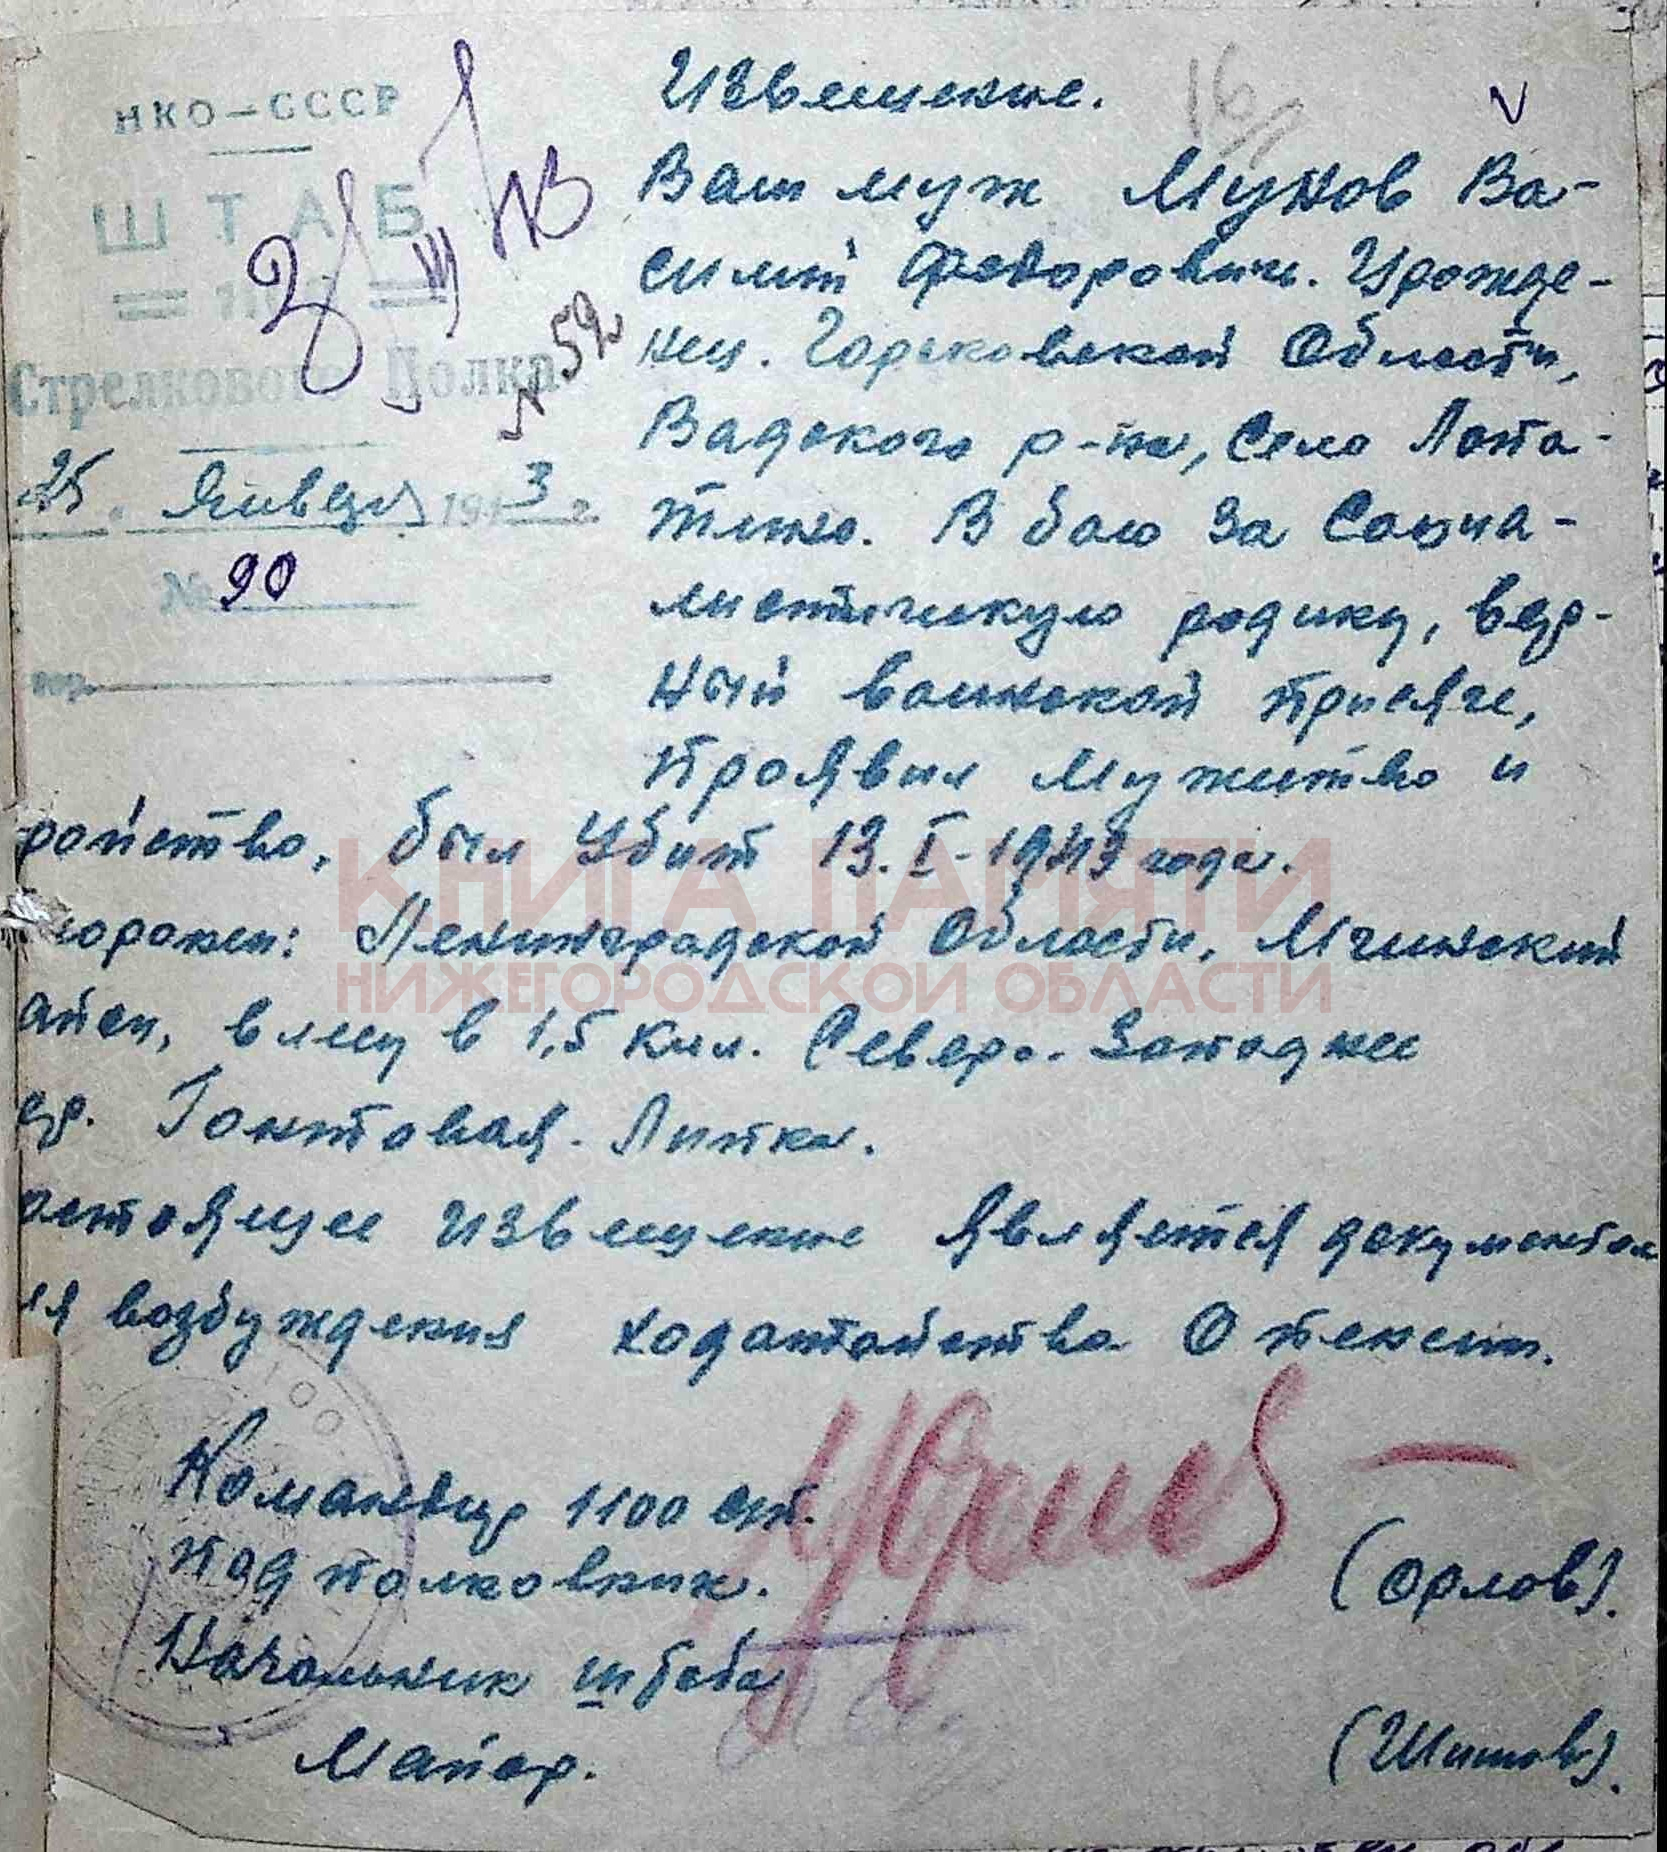 НКО-СССР
ШТАБ
Стрелкового Полка
№ 59
25. Января 1943 г.
№ 90
16
Извещение.
Ваш муж Мунов Ва-
силий Федорович. Урожде-
нец. Горьковской Области,
Вадского р-на, село Лопа-
тино. В бою за Социа-
листическую родину, вер-
ный воинской присяге,
проявил мужество и
ройство, был убит 13.I-1943 года.
хоронен: Ленинградской Области, Мгинский
айон, в лесу в 1,5 клм. Северо-Западнее
ер. Гонтовая-Липка.
астоящее извещение является документом
ля возбуждения ходатайства о пенсии.
Командир 1100 сп.
подполковник. (Орлов).
Начальник штаба
Майор. (Шитов).
КНИГА ПАМЯТИ
НИЖЕГОРОДСКОЙ ОБЛАСТИ